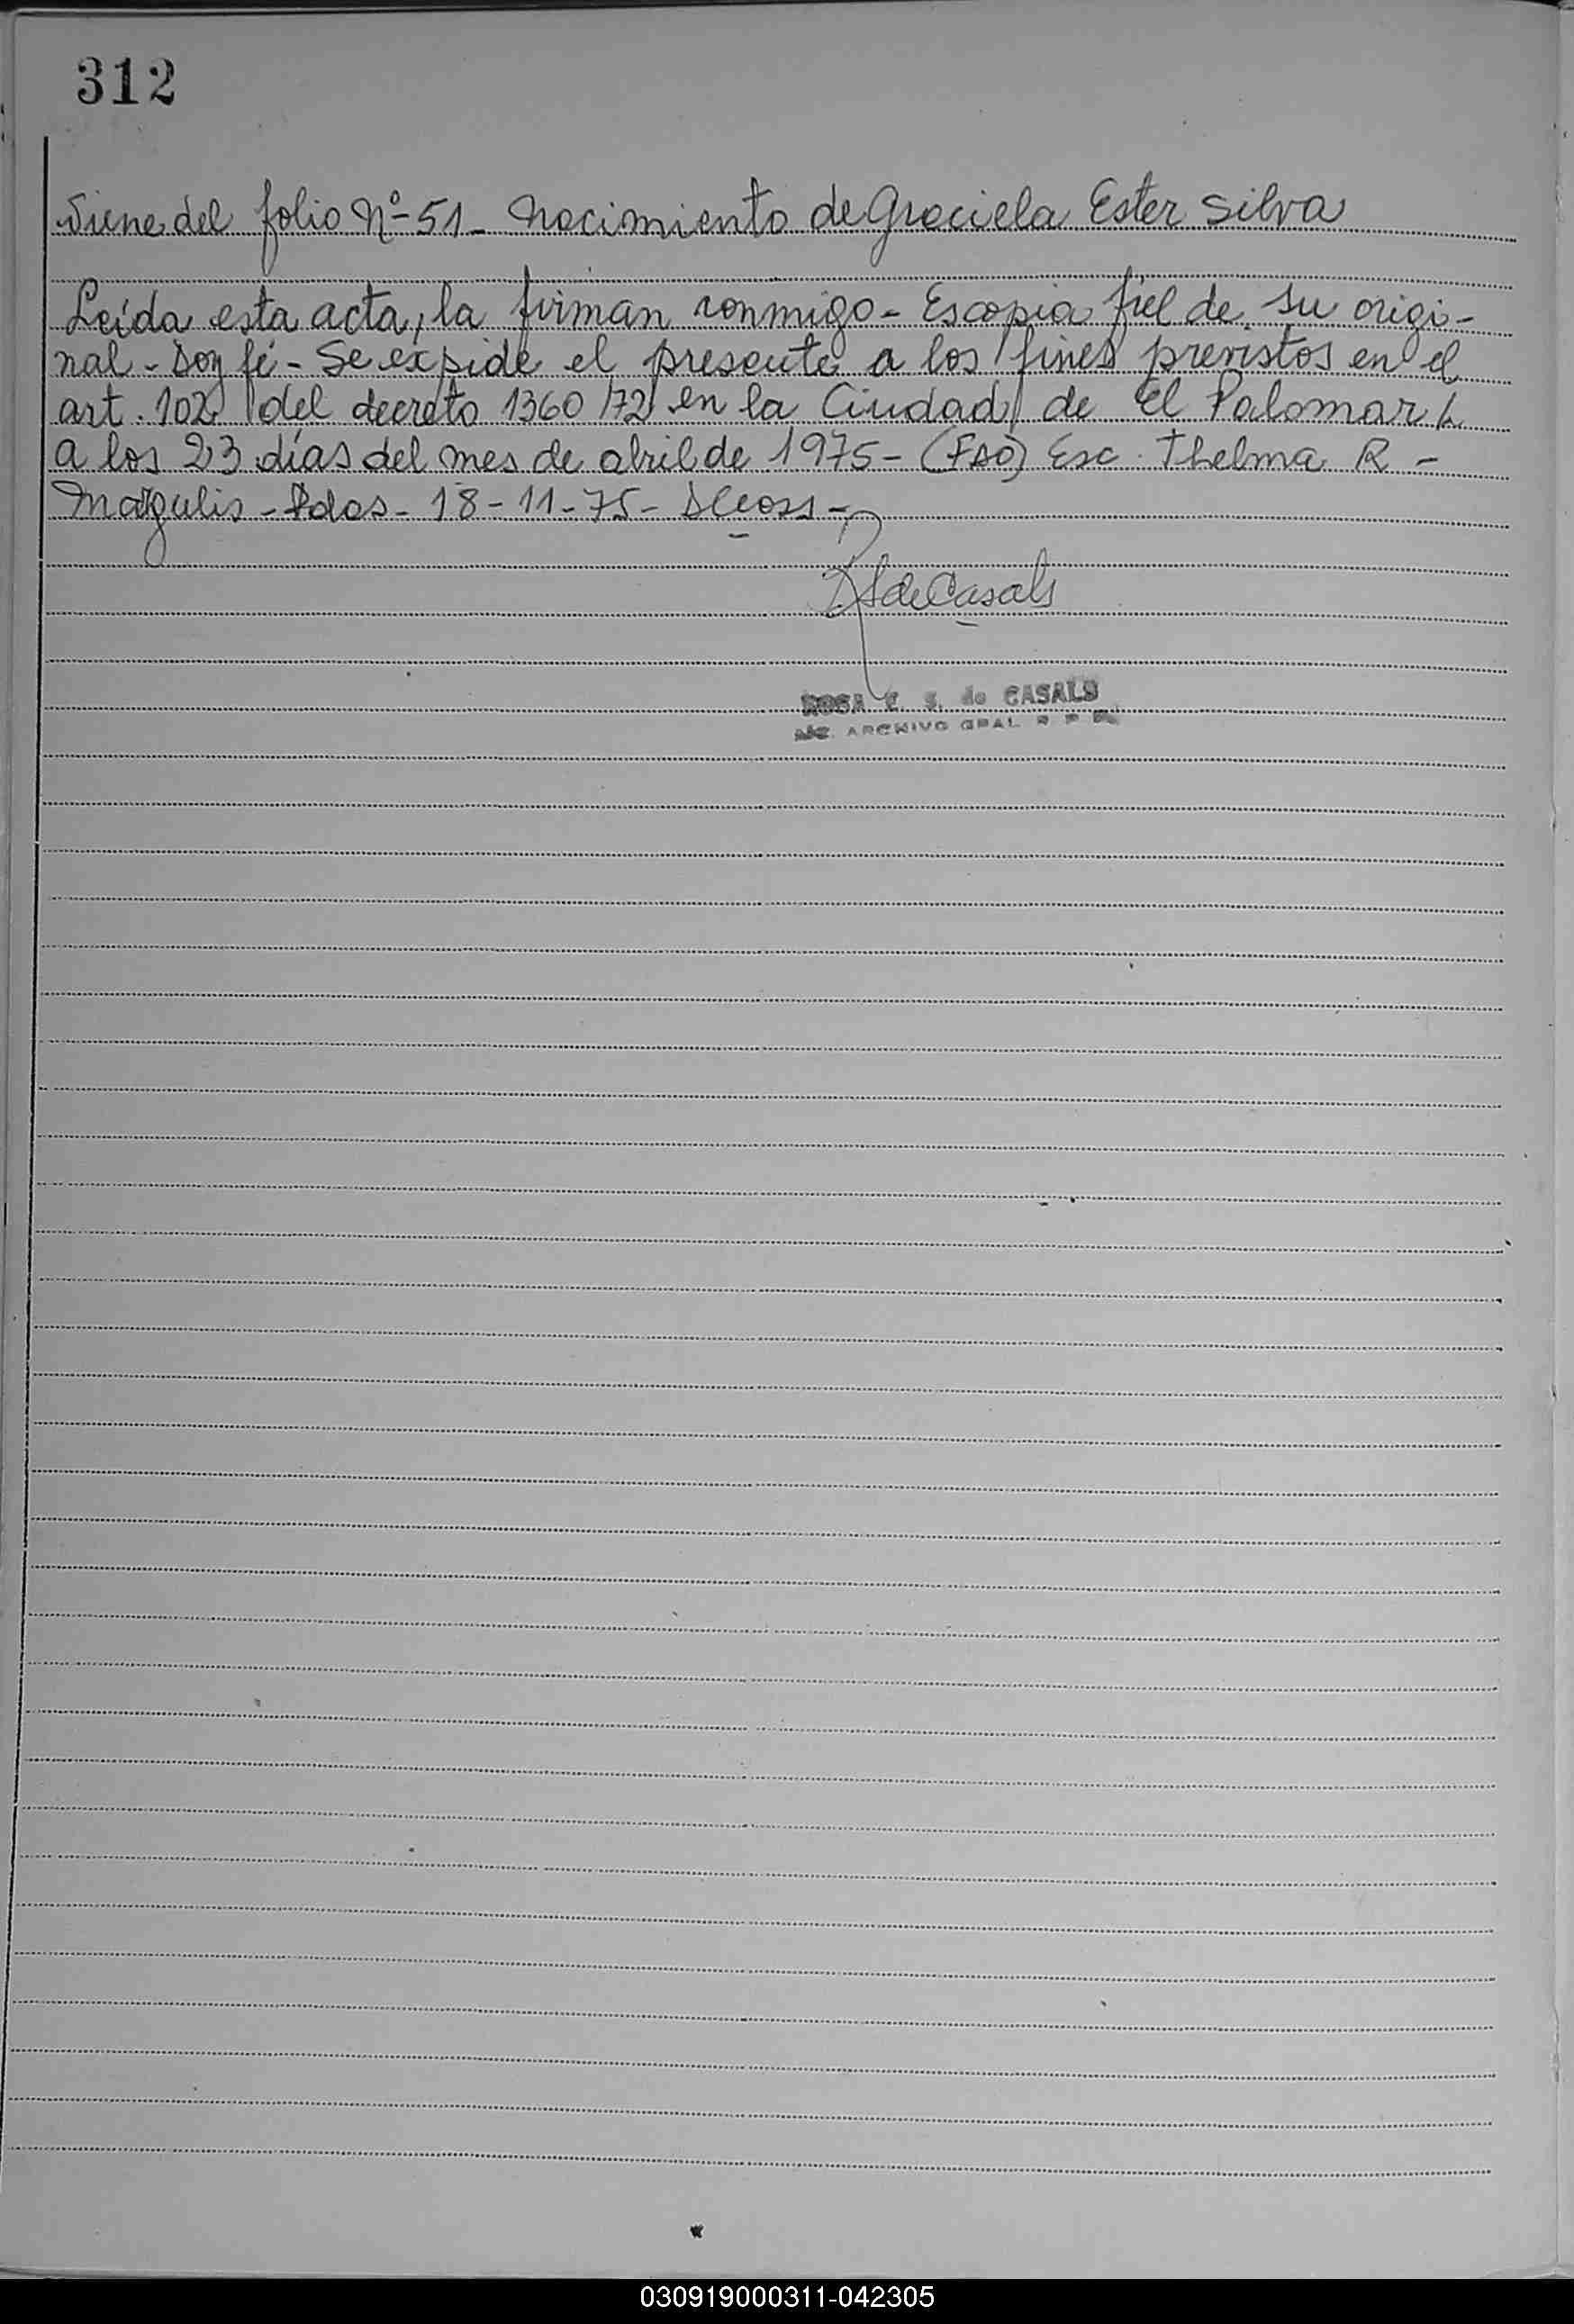 312
Viene del folio Nº-51- Nacimiento de Graciela Ester Silva
Leída esta acta, la firman conmigo - Es copia fiel de su origi-
nal - Doy fé - Se expide el presente a los fines previstos en el
art. 102 del decreto 1360/72 en la Ciudad de El Palomar
a los 23 días del mes de abril de 1975 - (Fdo) Esc. Thelma R -
Margulis - Pdas - 18-11-75 -
de Casals
ROSA E. S. de CASALS
ARCHIVO GRAL
030919000311-042305